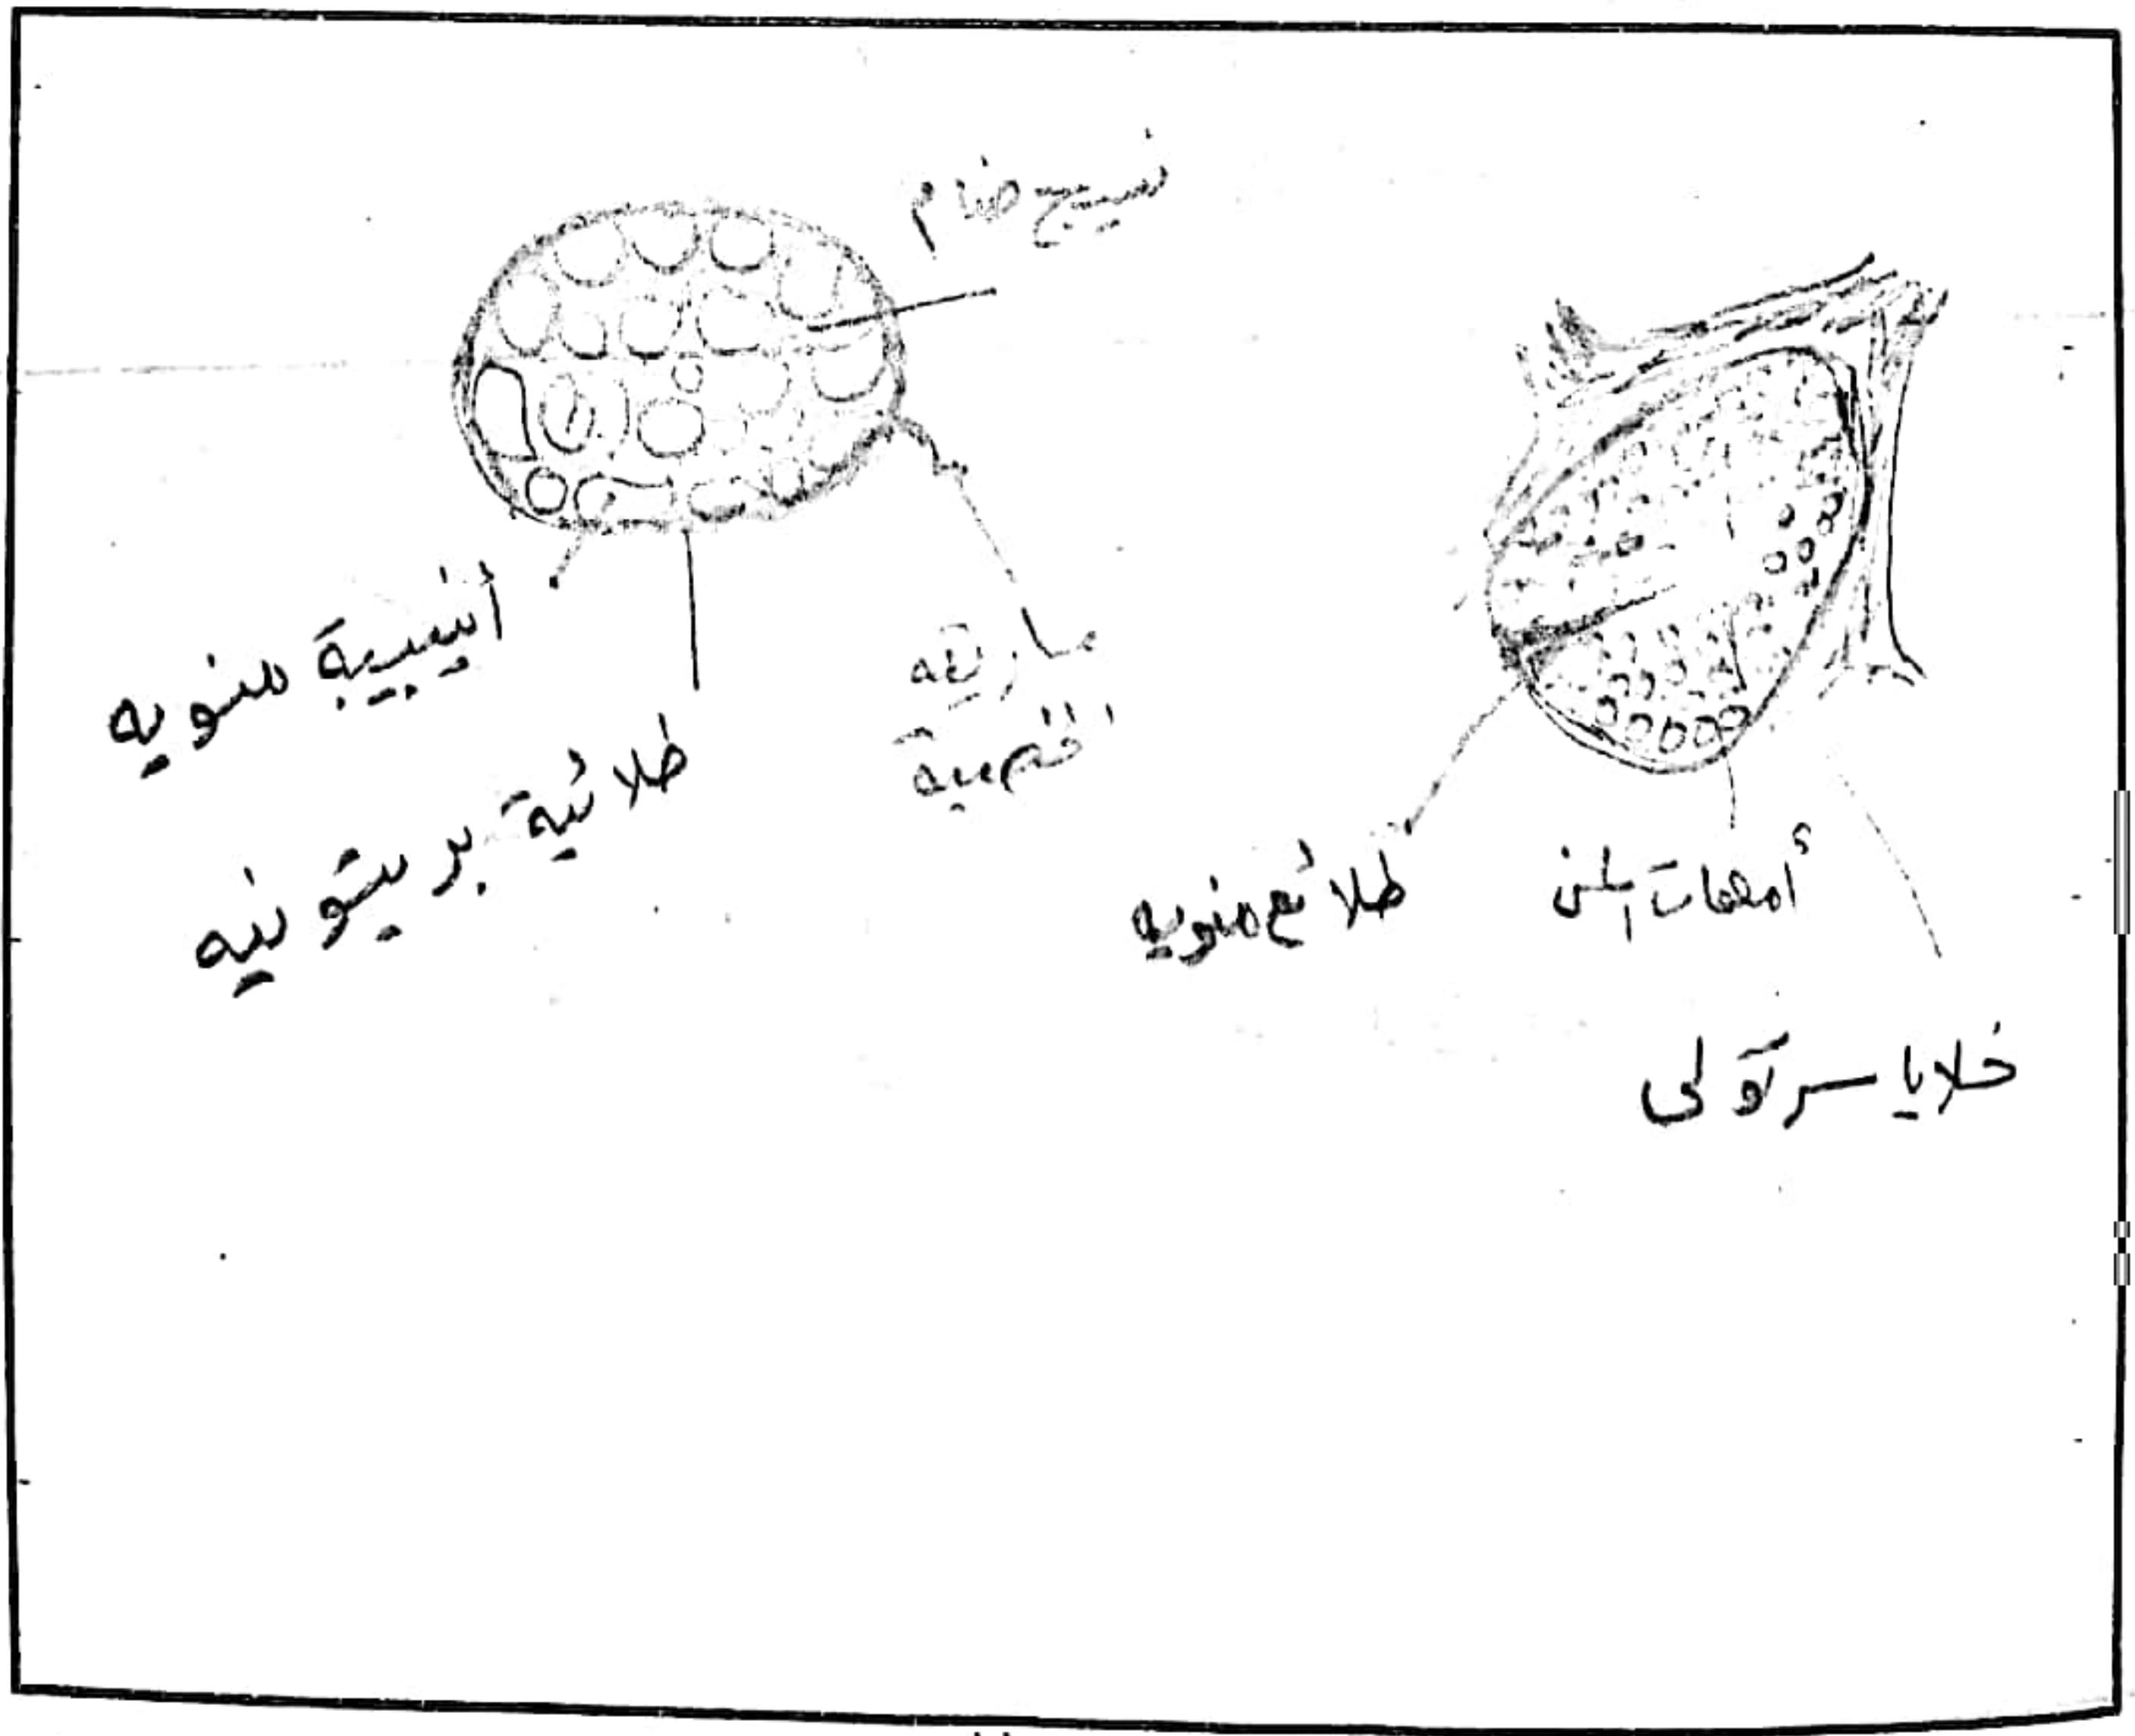 نسيج ضام
أنيبيبة منويه
طلائية بريتونيه
الخصية
طلائع منويه
أمهات المني
خلايا سرتولي